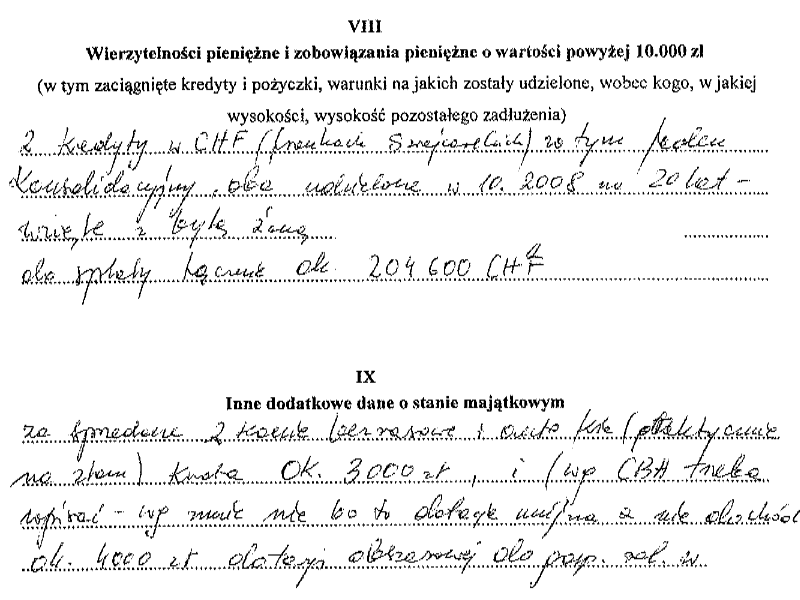 VIII
Wierzytelności pieniężne i zobowiązania pieniężne o wartości powyżej 10.000 zl
(w tym zaciągnięte kredyty i pożyczki, warunki na jakich zostały udzielone, wobec kogo, w jakiej
wysokości, wysokość pozostałego zadłużenia)
2 kredyty w CHF (frankach szwajcarskich) w tym jeden
konsolidacyjny, oba udzielone w 10.2008 na 20 lat -
wzięte z byłą żoną
do spłaty łącznie ok. 204 600 CHF
IX
Inne dodatkowe dane o stanie majątkowym
za sprzedane 2 konie bezrasowe i auto (praktycznie
na złom) kwota ok. 3000 zł, i (wg CBA trzeba
wpisać - wg mnie nie bo to dotacja unijna a nie dochód
ok. 4000 zł dotacji obszarowej do gosp. rol. w